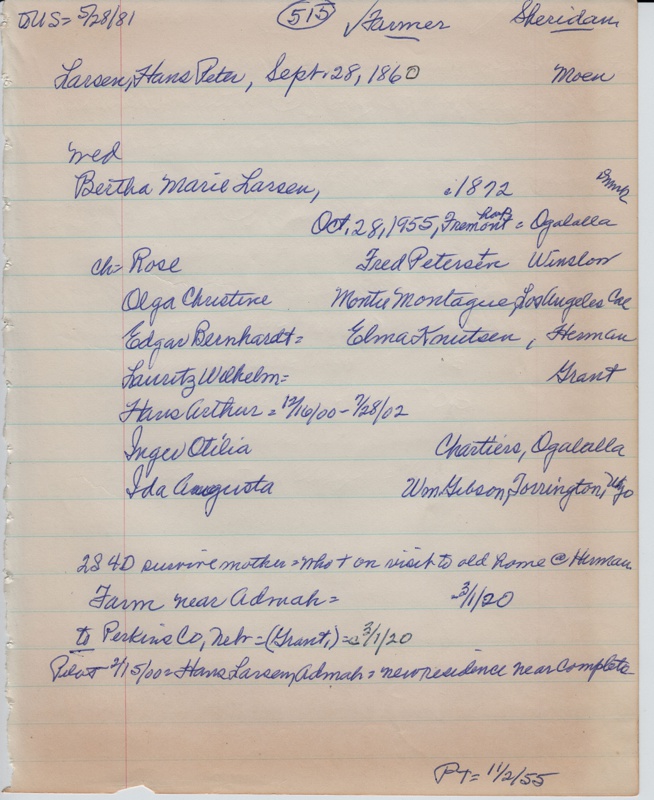 TO US = 5/28/81 (515) √Farmer Sheridan
Larsen, Hans Peter, Sept. 28, 1860 Moen
wed
Bertha Marie Larsen, c1872 Dnmk
Oct. 28, 1955, Fremont hosp = Ogalalla
ch = Rose Fred Petersen Winslow
Olga Christine Monte Montague, Los Angeles Cal
Edgar Bernhardt = Elma Knutsen, Herman
Lauritz Wilhelm = Grant
Hans Arthur = 12/16/00 - 7/28/02
Inger Otilia Chartiers, Ogalalla
Ida Augusta Wm Gibson, Torrington, Wyo
2S 4D survive mother = who + on visit to old home @ Herman
Farm near Admah = -3/1/20
to Perkins Co, Nebr = (Grant,) = 3/1/20
Pilot 2/15/00 = Hans Larsen, Admah = new residence near complete
PT = 11/2/55